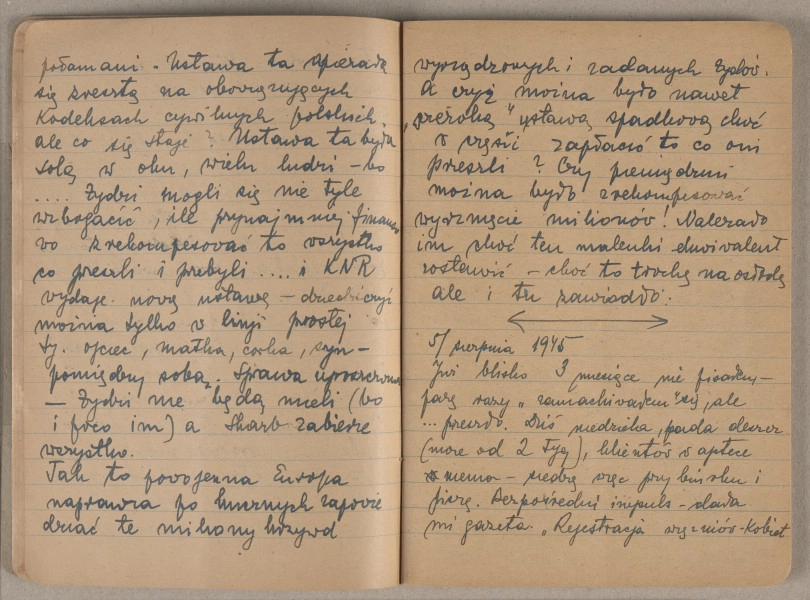 połamani - Ustawa ta opierała
się zresztą na obowiązujących
Kodeksach cywilnych polskich.
ale co się staje? Ustawa ta była
solą w oku, wielu ludzi - bo
.... Żydzi mogli się nie tyle
wzbogacić, ile przynajmniej finanso
wo zrekompesować to wszystko
co przeszli i przebyli .... i KNR
wydaje nową ustawę - dziedziczyć
można tylko w linji prostej
tj. ojciec, matka, corka, syn -
pomiędzy sobą. Sprawa uproszczona
- Żydzi nie będą mieli (bo
i poco im) a Skarb zabierze
wszystko.
Tak to powojenna Europa
naprawia po
dziać te miliony krzywd
wyrządzonych i zadanych Żydów.
A czyż można było nawet
"szeroką" ustawą spadkową choć
w części zapłacić to co oni
przeszli? Czy pieniędzmi
można było zrekompesować
wyrżnięcie milionów! Należało
im choć ten malenki ekwiwalent
zostawić - choć to trochę na osłodę
ale i tu zawiodło.
5/ sierpnia 1945
Już blisko 3 miesiące nie pisałem -
parę razy "zamachiwałem" się, ale
... przeszło. Dziś niedziela, pada deszcz
(może od 2 tyg), klientów w aptece
niema - siedzę więc przy biurku i
piszę. Bezpośredni impuls - dała
mi gazeta. "Rejestracja więzniów-Kobiet